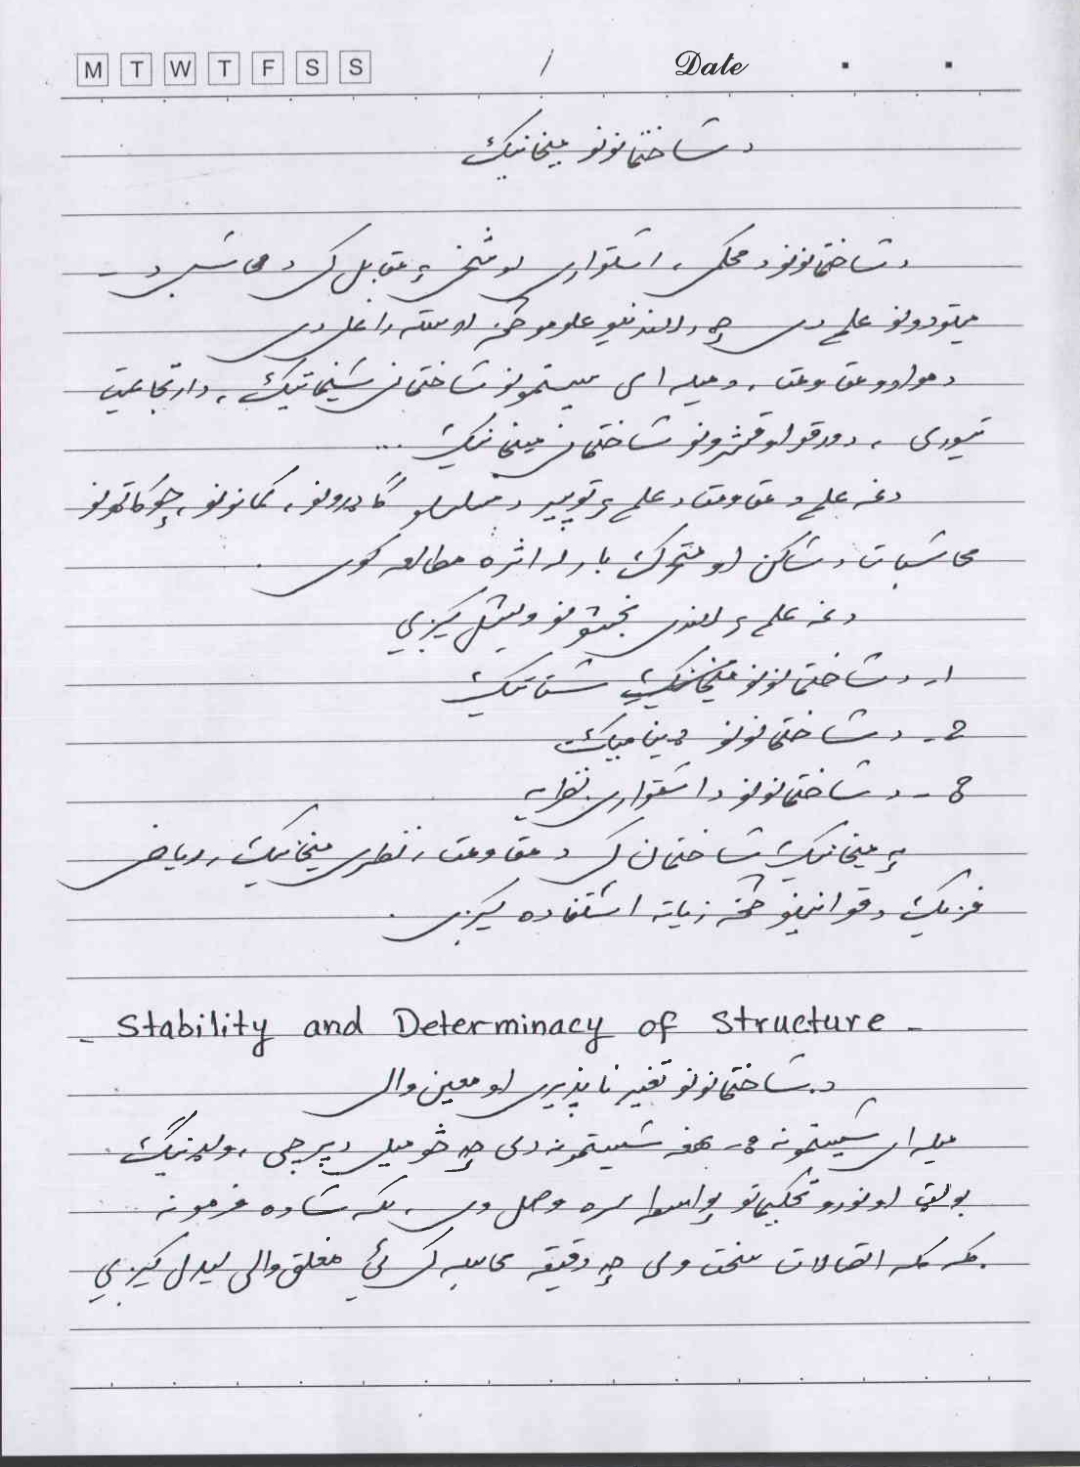 M T W T F S S / Date
د ساختمانونو میخانیک
د ساختمانونو د محکمی، استواری او سختی په مقابل کی د محاسبی د -
میتودونو علم دی چه د لاندنیو علومو څخه لاسته راغلی دی
د موادو مقاومت، د میله ای سیستمونو ساختمانی سینماتیک، د ارتجاعیت
تیوری، د ورقو او قشرونو ساختمانی میخانیک ...
دغه علم د مقاومت د علم په توپیر د مسلسلو ګاډرونو، کمانونو، چوکاټونو
محاسبات د ساکن او متحرک بار لد اثره مطالعه کوی.
دغه علم په لاندی بخشونو ویشل کیږی
۱- د ساختمانونو ستاتیک
۲- د ساختمانونو دینامیک
۳- د ساختمانونو د استواری نظریه
په میخانیک ساختمان کی د مقاومت، نظری میخانیک، ریاضی
فزیک د قوانینو څخه زیاته استفاده کیږی.
- Stability and Determinacy of Structure -
د ساختمانونو تغیر ناپذیری او معین والی
میله ای سیستمونه :- هغه سیستمونه دی چه څو میلی د پرچی، ولډینګ
بولټ او نورو تحکیماتو پواسطه سره وصل وی، لکه ساده فرمونه
که که اتصالات سخت وی چه دقیقه محاسبه کی ئی مغلق والی لیدل کیږی